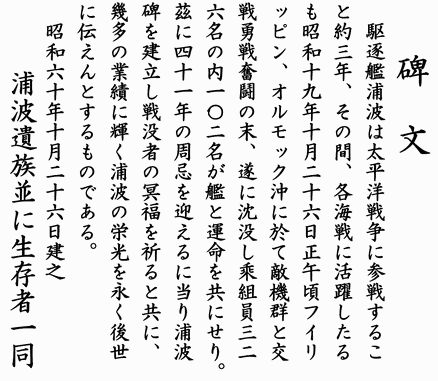 碑文
駆逐艦浦波は太平洋戦争に参戦するこ
と約三年、その間、各海戦に活躍したる
も昭和十九年十月二十六日正午頃フイリ
ッピン、オルモック沖に於て敵機群と交
戦勇戦奮闘の末、遂に沈没し乗組員三二
六名の内一〇二名が艦と運命を共にせり。
茲に四十一年の周忌を迎えるに当り浦波
碑を建立し戦没者の冥福を祈ると共に、
幾多の業績に輝く浦波の栄光を永く後世
に伝えんとするものである。
昭和六十年十月二十六日建之
浦波遺族並に生存者一同